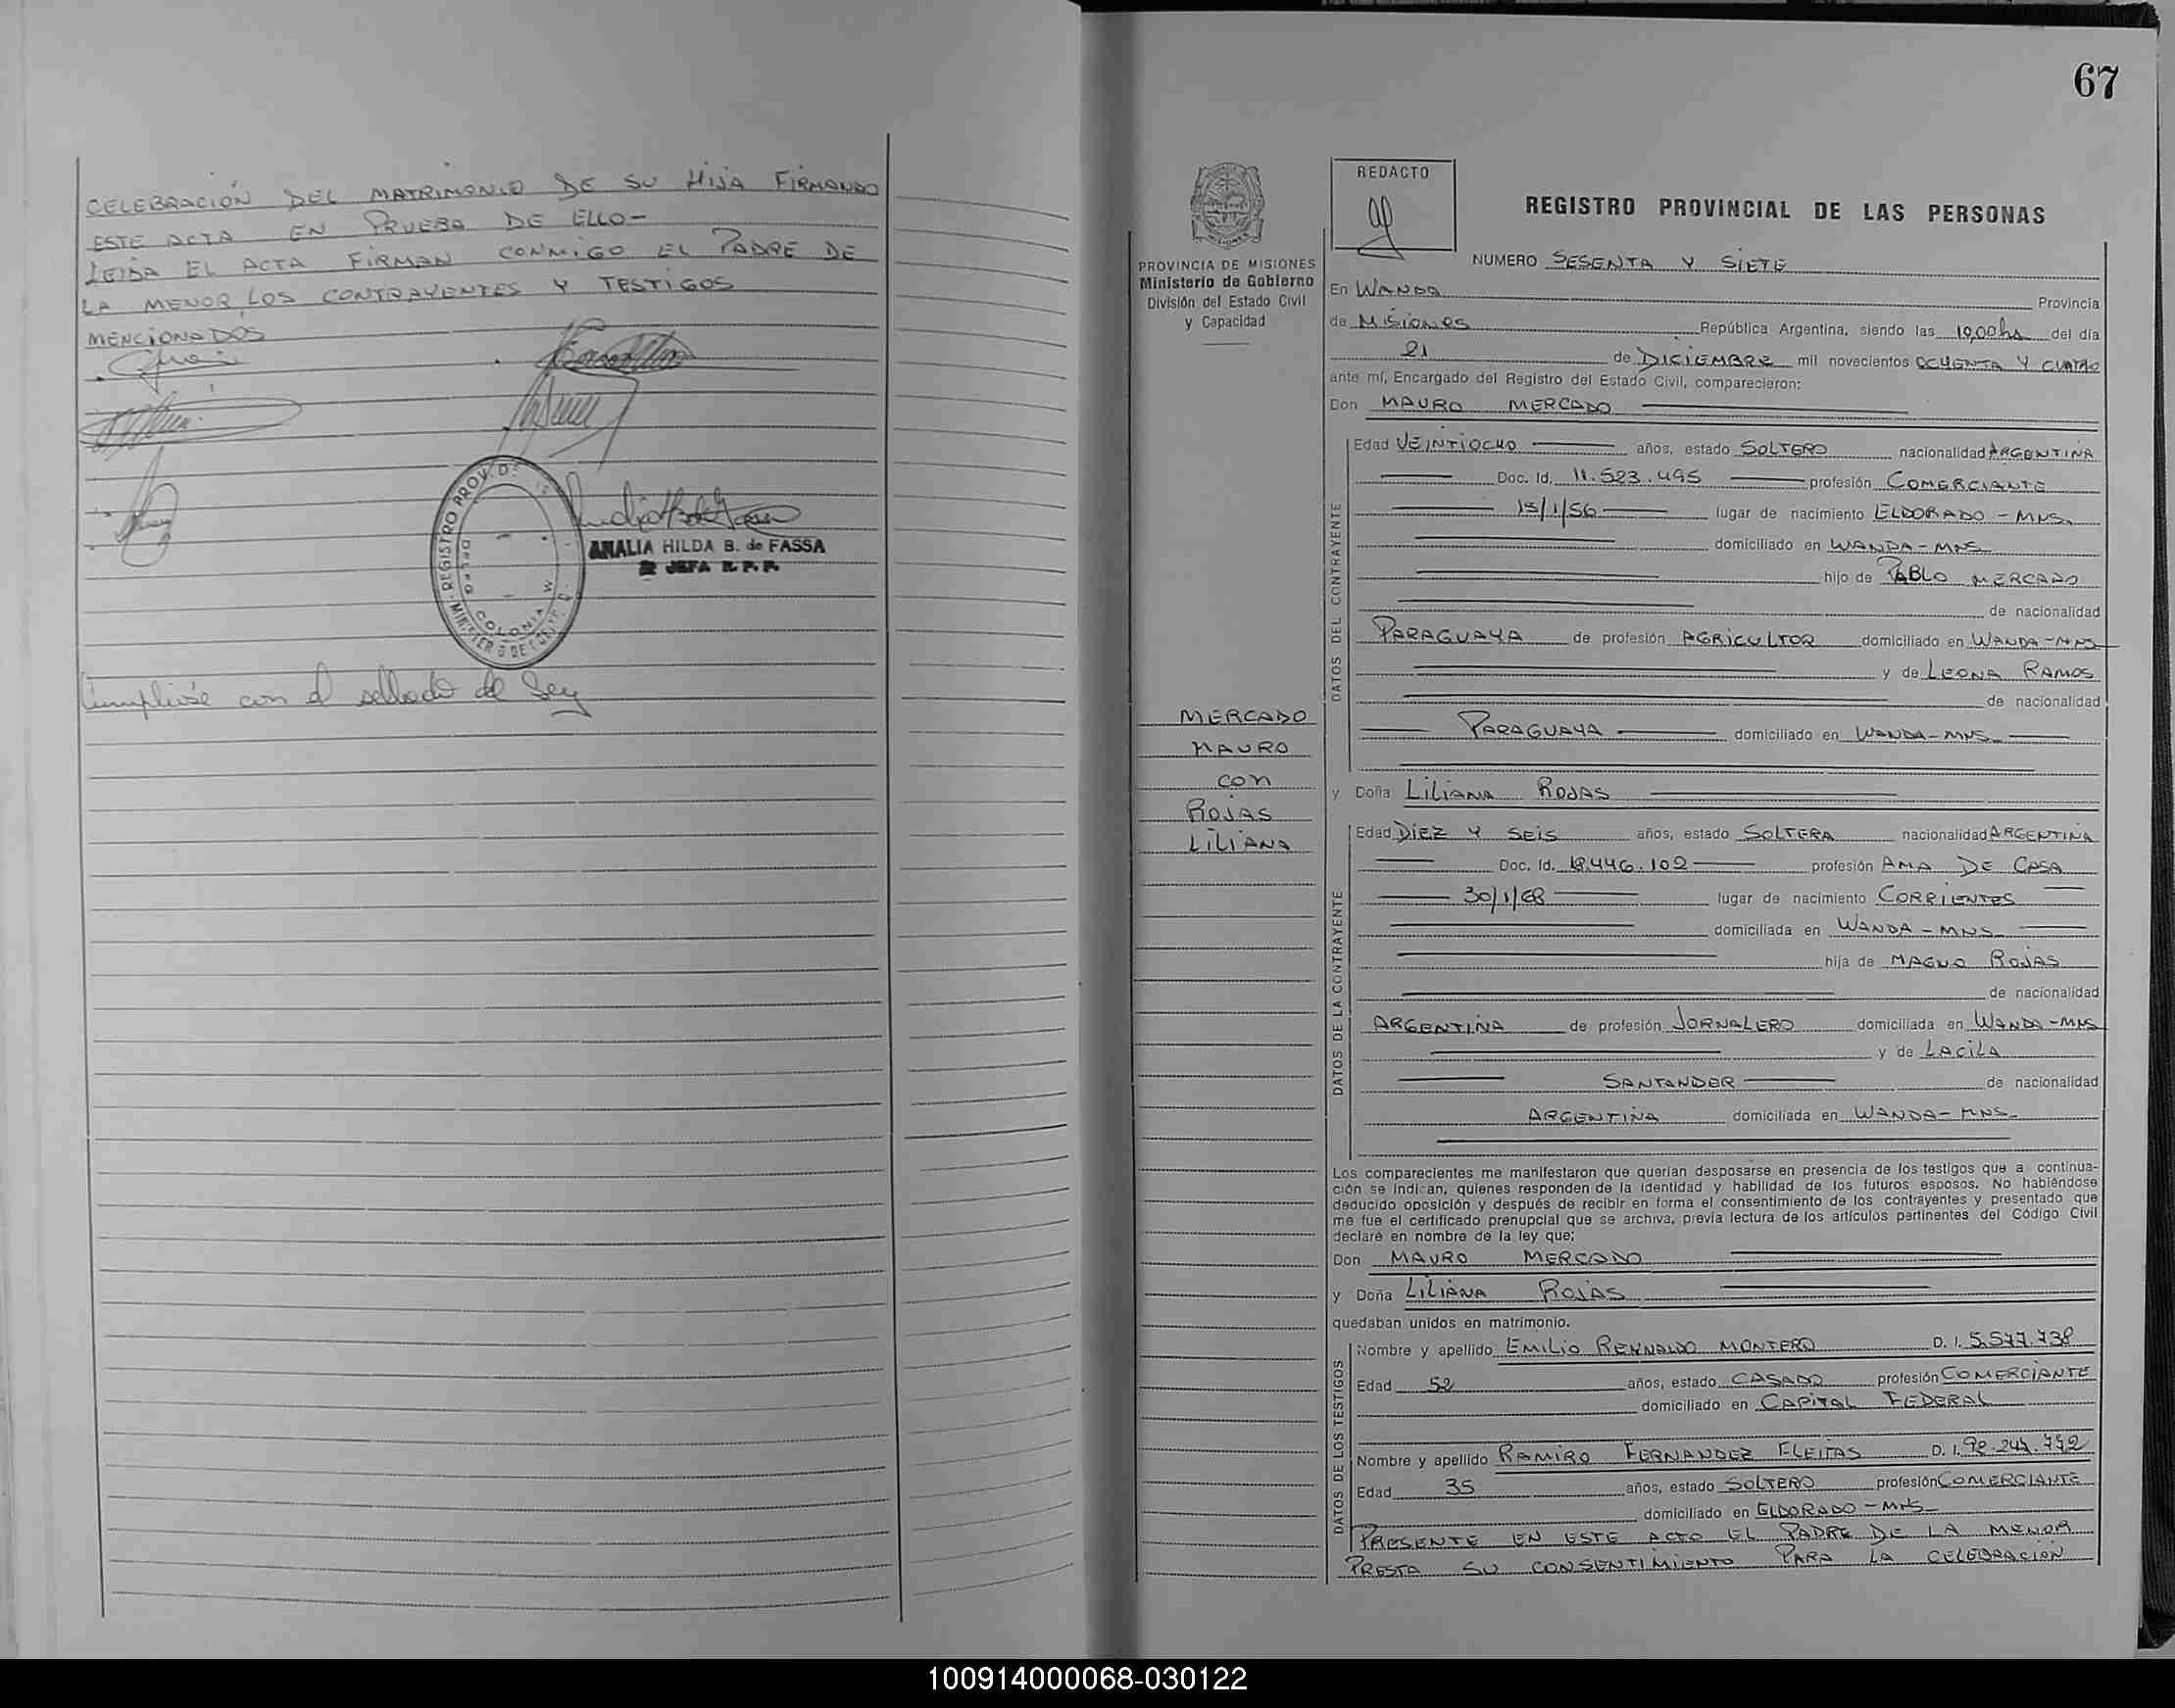 CELEBRACIÓN DEL MATRIMONIO DE SU HIJA FIRMANDO
ESTE ACTA EN PRUEBA DE ELLO-
LEIDA EL ACTA FIRMAN CONMIGO EL PADRE DE
LA MENOR LOS CONTRAYENTES Y TESTIGOS
MENCIONADOS
REGISTRO PROV. DE
COLONIA W
ANALIA HILDA B. de FASSA
JEFA R. P. P.
Cumpliose con el sellado de Ley
67
REDACTO
REGISTRO PROVINCIAL DE LAS PERSONAS
MISIONES
PROVINCIA DE MISIONES
Ministerio de Gobierno
División del Estado Civil
y Capacidad
MERCADO
MAURO
CON
ROJAS
LILIANA
NUMERO SESENTA Y SIETE
En WANDA Provincia
de MISIONES República Argentina, siendo las 10,00hs del día
21 de DICIEMBRE mil novecientos OCHENTA Y CUATRO
ante mí, Encargado del Registro del Estado Civil, comparecieron:
Don MAURO MERCADO
DATOS DEL CONTRAYENTE
Edad VEINTIOCHO años, estado SOLTERO nacionalidad ARGENTINA
Doc. Id. 11.523.495 profesión COMERCIANTE
15/1/56 lugar de nacimiento ELDORADO - MNS.
domiciliado en WANDA - MNS
hijo de PABLO MERCADO
de nacionalidad
PARAGUAYA de profesión AGRICULTOR domiciliado en WANDA - MNS
y de LEONA RAMOS
de nacionalidad
PARAGUAYA domiciliado en WANDA - MNS
y Doña LILIANA ROJAS
DATOS DE LA CONTRAYENTE
Edad DIEZ Y SEIS años, estado SOLTERA nacionalidad ARGENTINA
Doc. Id. 18.446.102 profesión AMA DE CASA
30/1/68 lugar de nacimiento CORRIENTES
domiciliada en WANDA - MNS
hija de MAGNO ROJAS
de nacionalidad
ARGENTINA de profesión JORNALERO domiciliada en WANDA - MNS
y de LACILA
SANTANDER de nacionalidad
ARGENTINA domiciliada en WANDA - MNS
Los comparecientes me manifestaron que querían desposarse en presencia de los testigos que a continua-
ción se indican, quienes responden de la identidad y habilidad de los futuros esposos. No habiéndose
deducido oposición y después de recibir en forma el consentimiento de los contrayentes y presentado que
me fue el certificado prenupcial que se archiva, previa lectura de los artículos pertinentes del Código Civil
declaré en nombre de la ley que:
Don MAURO MERCADO
y Doña LILIANA ROJAS
quedaban unidos en matrimonio.
DATOS DE LOS TESTIGOS
Nombre y apellido EMILIO REYNALDO MONTERO D. I. 5.577.738
Edad 52 años, estado CASADO profesión COMERCIANTE
domiciliado en CAPITAL FEDERAL
Nombre y apellido RAMIRO FERNANDEZ FLEITAS D. I.
Edad 35 años, estado SOLTERO profesión COMERCIANTE
domiciliado en ELDORADO - MNS
PRESENTE EN ESTE ACTO EL PADRE DE LA MENOR
PRESTA SU CONSENTIMIENTO PARA LA CELEBRACIÓN
100914000068-030122